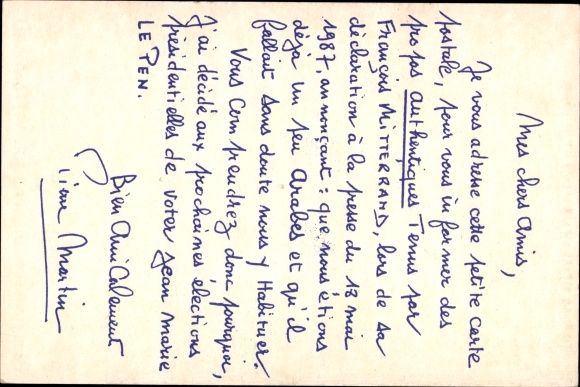 Mes chers Amis,
Je vous adresse cette petite carte
postale, pour vous informer des
propos authentiques Tenus par
François MITTERRAND, lors de sa
déclaration à la presse du 18 mai
1987, annonçant : que nous étions
déjà un peu Arabes et qu'il
fallait sans doute nous y Habituer.
Vous comprendrez donc pourquoi,
J'ai décidé aux prochaines élections
présidentielles de voter Jean Marie
LE PEN.
Bien AmiCalement
Pierre Martin